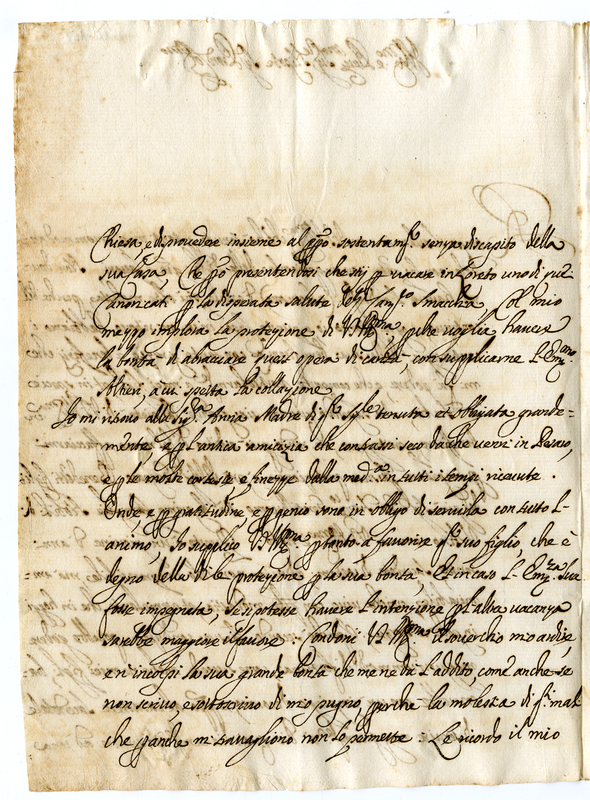 Chiesa, e di provedere insieme al ppo sostentamto senza discapito della
sua Casa, Che ppo presentendosi che stij p vacare in Loreto uno di quei
Canonicati p la disperata salute del Sigr Smacchia, Col mio
mezzo implora la protezione di V. Illma, pche voglia havere
la bontà di abraciare quest' opera di carità, con supplicarne l' Emmo
Altieri, a cui spetta la collazione
Io mi ritrovo alla Sigra Anna Madre di qto tenuta et obligata grande=
mente, e p l' antica amicizia che contrassi seco da che venni in
e p le molte cortesie e finezze dalla meda in tutti i tempi ricevute.
Onde e p gratitudine e p genio sono in obligo di servirla con tutto l'
animo, Io suplico V. Illma ptanto a favorire qto suo figlio, che è
degno della di le protezione p la sua bontà, Et in caso l' Emza Sua
fosse impegnata, se si potesse havere l' intenzione p l' altra vacanza
sarebbe maggiore il favore. Condoni V. Illma il soverchio mio ardire,
e n' incolpi la sua grande bontà che me ne dà l' addito, come anche se
non scrivo e sottoscrivo di mio pugno, perche la molestia di
che anche mi travagliono non lo permette: Le ricordo il mio